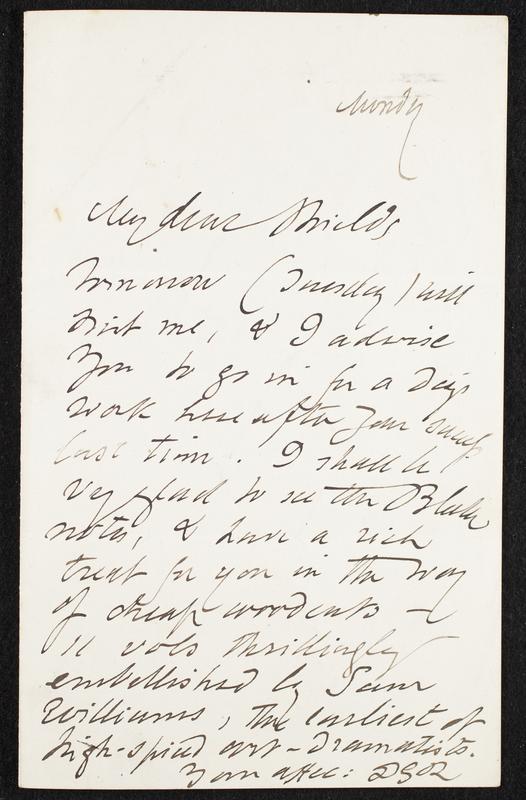 Monday
My dear Shields
Tomorrow (Tuesday) will
suit me, & I advise
you to go in for a day's
work here after your
last time. I shall be
very glad to see the Blake
notes, & have a rich
treat for you in the way
of cheap woodcuts —
11 vols thrillingly
embellished by Sam
Williams, the earliest of
high-spiced art-dramatists.
Your affec: DGR